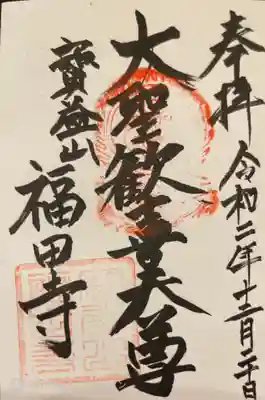 奉拝 令和二年十二月二十日
大聖歓喜天尊
寶益山 福田寺